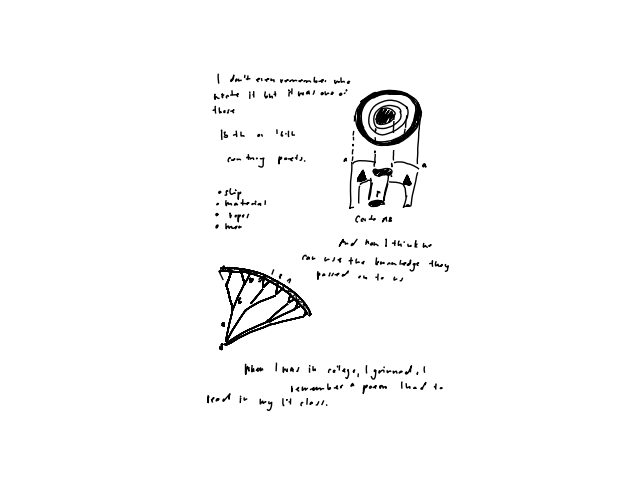 I don't even remember who
wrote it but it was one of
those
16th or 18th
century poets.
• ship
• material
• ropes
• men
a
a
And now I think we
can use the knowledge they
passed on to us
When I was in college, I
remember a poem I had to
read in my lit class.